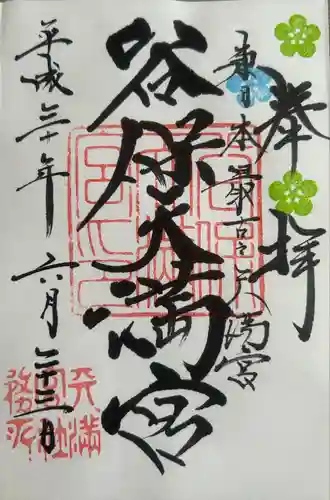 奉拝
東日本最古之天満宮
谷保天満宮
平成三十年六月二十三日
天満宮社務所